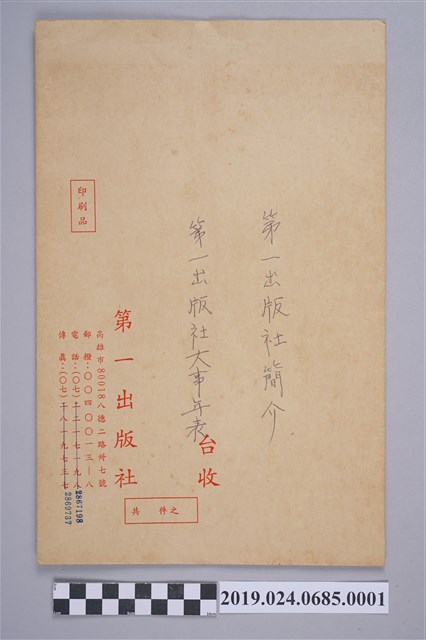 第一出版社簡介
第一出版社大事年表
台收
第一出版社
高雄市80018八德二路卅七號
郵撥：〇〇四〇〇一三—八
電話：（〇七）
2867198
傳真：（〇七）
2869737
印刷品
共 件之
2019.024.0685.0001